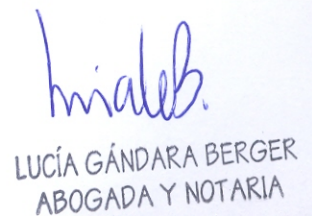 LUCÍA GÁNDARA BERGER
ABOGADA Y NOTARIA